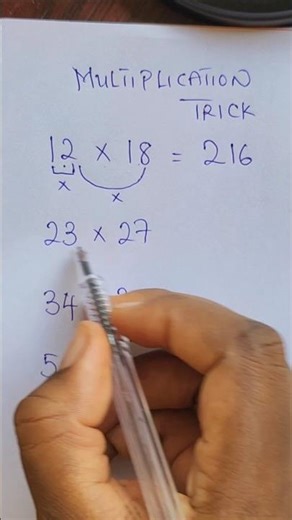 MULTIPLICATION
TRICK
12 × 18 = 216
×
×
23 × 27
34
5